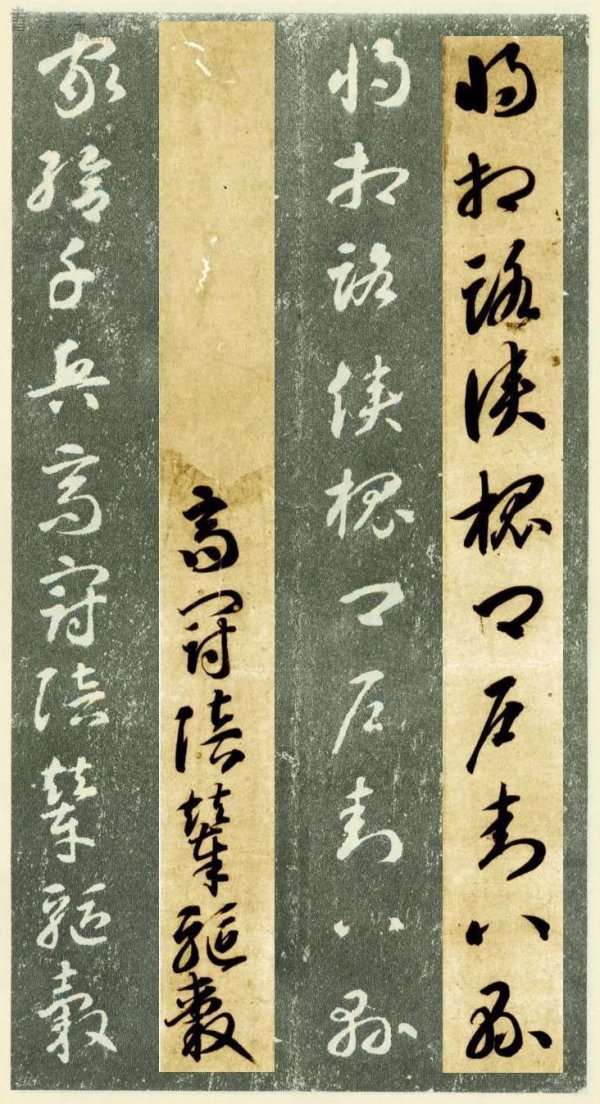 將相路俠槐卿戶封八縣
將相路俠槐卿戶封八縣
高冠陪輦驅轂
家給千兵高冠陪輦驅轂